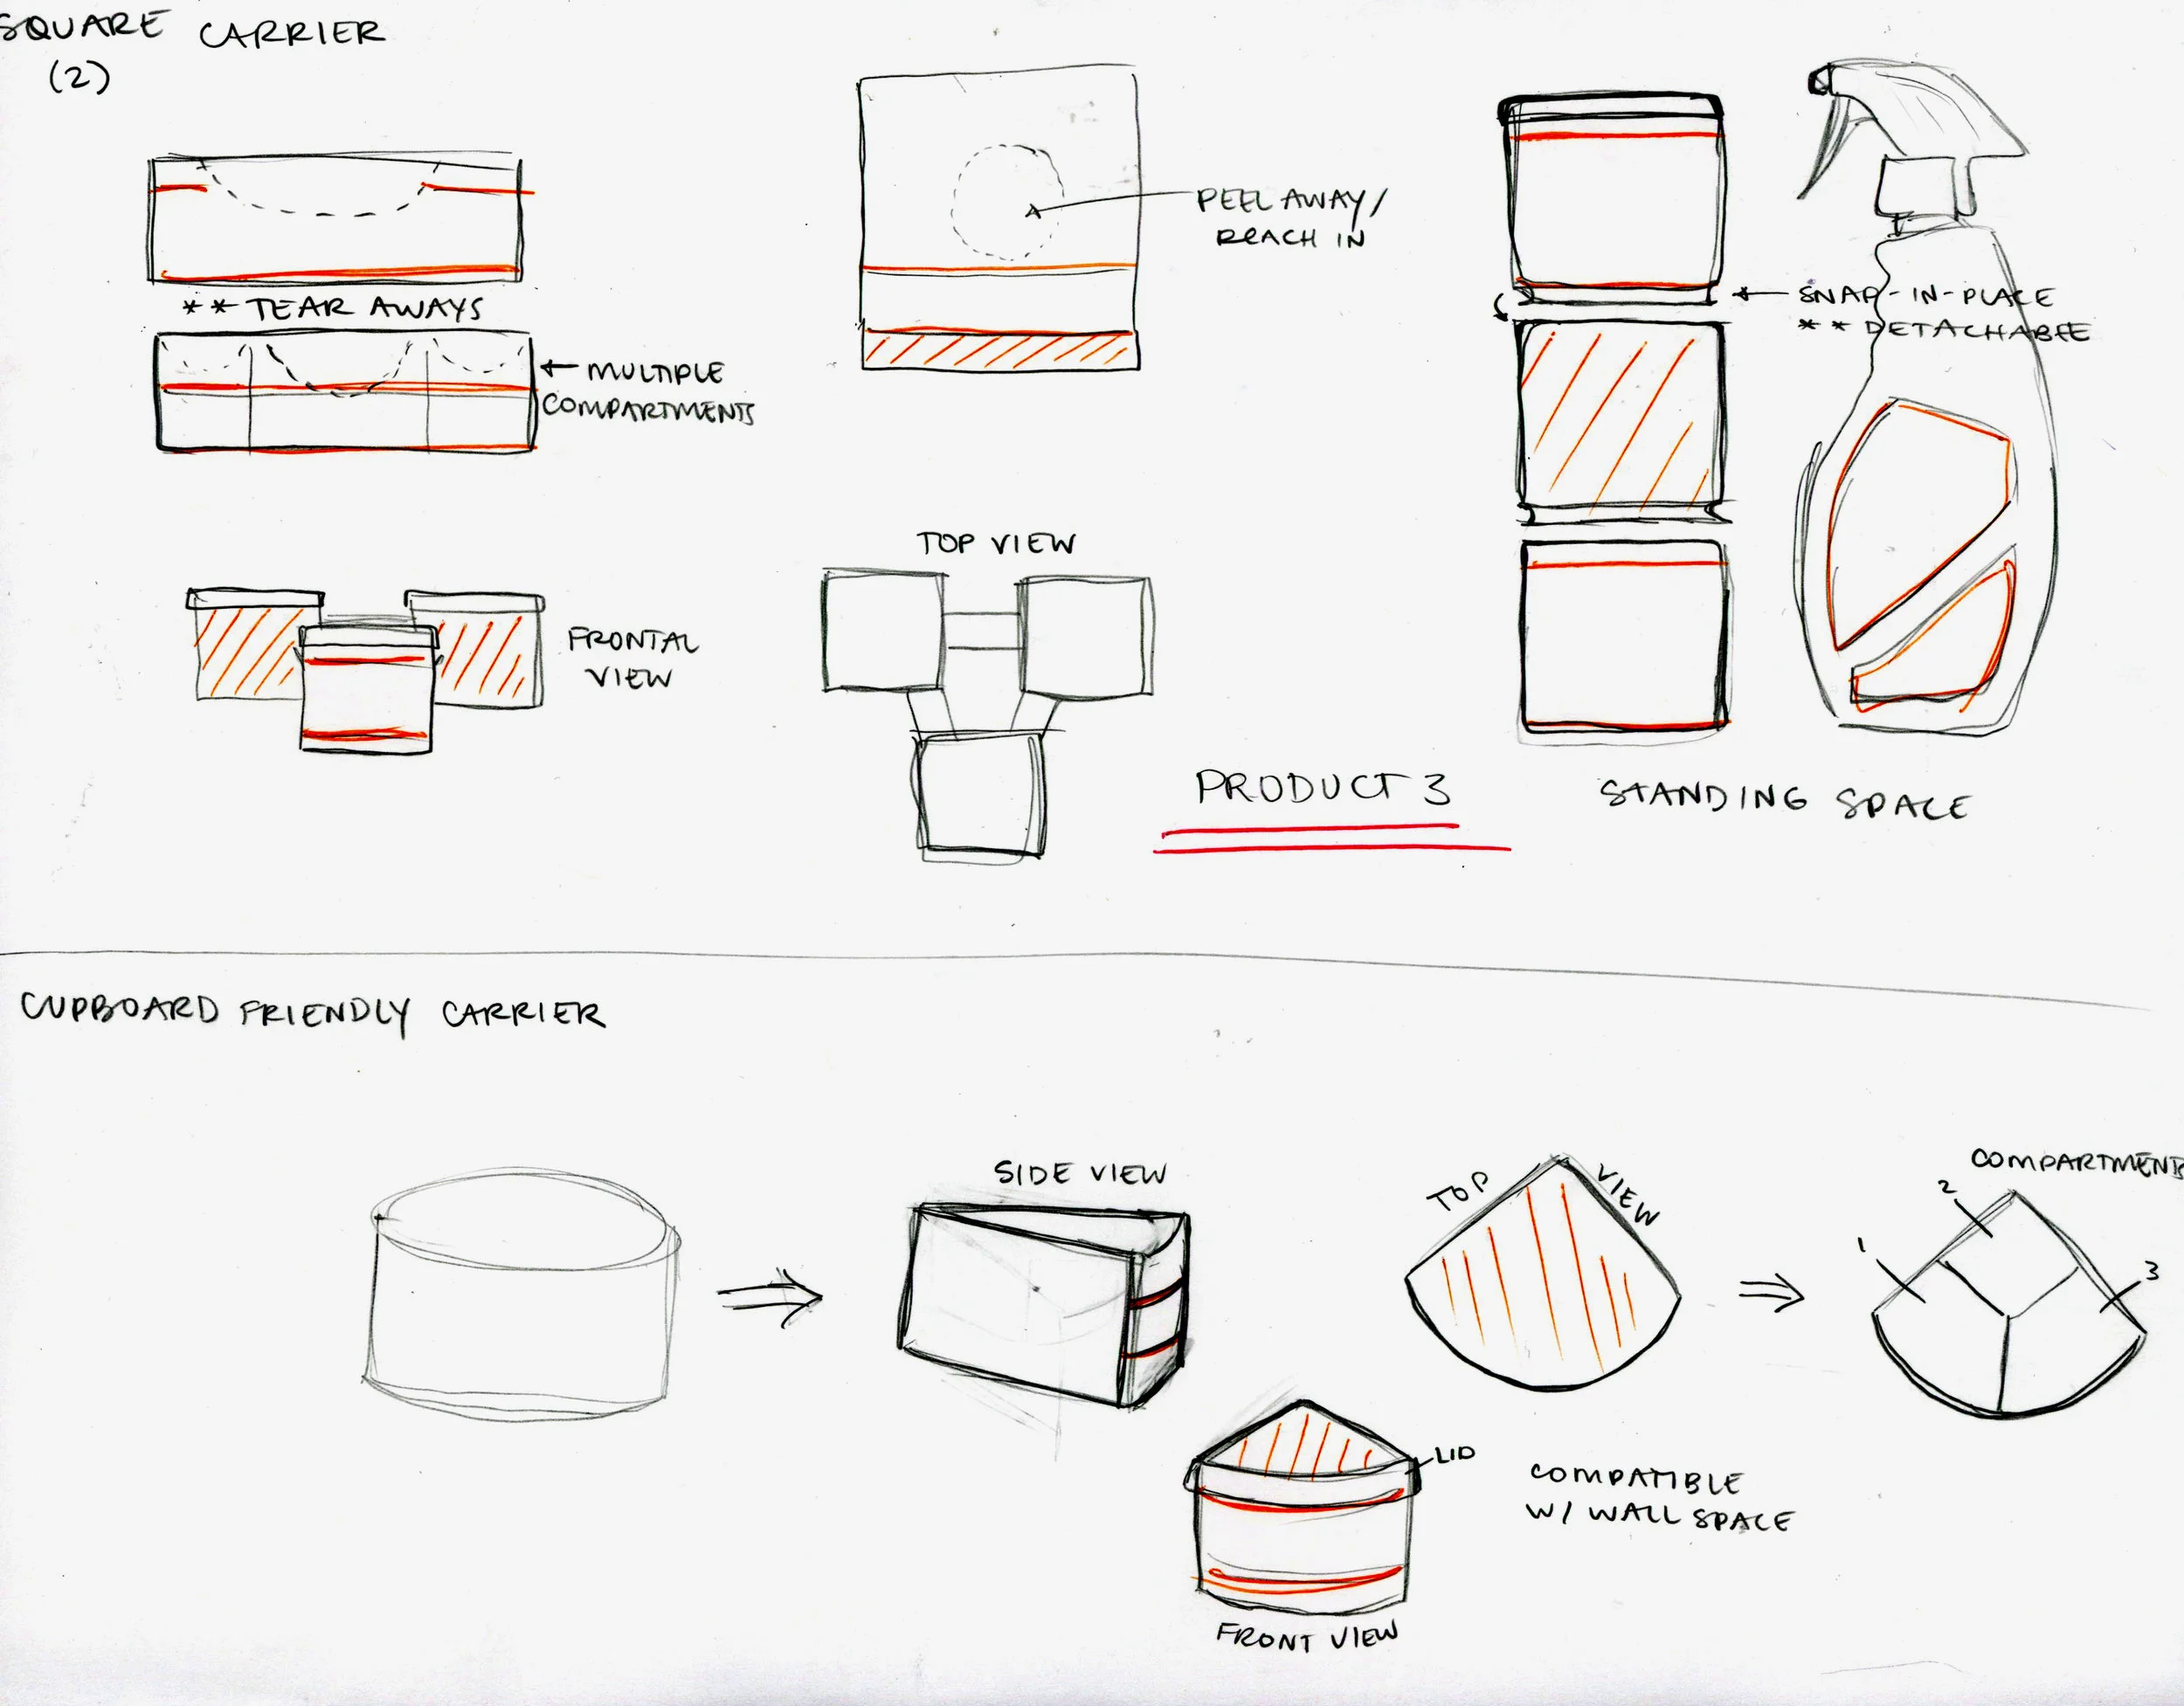 SQUARE CARRIER
(2)
PEEL AWAY/
REACH IN
** TEAR AWAYS
← MULTIPLE
COMPARTMENTS
← SNAP-IN-PLACE
** DETACHABLE
TOP VIEW
FRONTAL
VIEW
PRODUCT 3
STANDING SPACE
CUPBOARD FRIENDLY CARRIER
SIDE VIEW
TOP VIEW
COMPARTMENTS
2
1
3
LID
COMPATIBLE
W/ WALL SPACE
FRONT VIEW